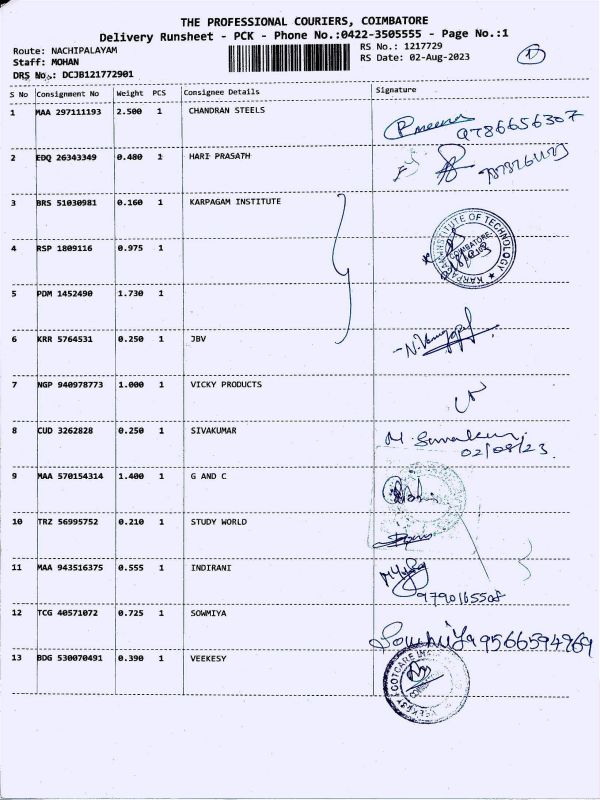 THE PROFESSIONAL COURIERS, COIMBATORE
Delivery Runsheet - PCK - Phone No.:0422-3505555 - Page No.:1
Route: NACHIPALAYAM
Staff: MOHAN
DRS No.: DCJB121772901
RS No.: 1217729
RS Date: 02-Aug-2023
1
S No Consignment No Weight PCS Consignee Details Signature
1 MAA 297111193 2.500 1 CHANDRAN STEELS
9786656307
2 EDQ 26343349 0.480 1 HARI PRASATH
3 BRS 51030981 0.160 1 KARPAGAM INSTITUTE
INSTITUTE OF TECHNOLOGY
COIMBATORE
4 RSP 1809116 0.975 1
5 PDM 1452490 1.730 1
6 KRR 5764531 0.250 1 JBV
7 NGP 940978773 1.000 1 VICKY PRODUCTS
8 CUD 3262828 0.250 1 SIVAKUMAR
02/08/23
9 MAA 570154314 1.400 1 G AND C
10 TRZ 56995752 0.210 1 STUDY WORLD
11 MAA 943516375 0.555 1 INDIRANI
9790165508
12 TCG 40571072 0.725 1 SOWMIYA
Sowmiya 9566594969
13 BDG 530070491 0.390 1 VEEKESY